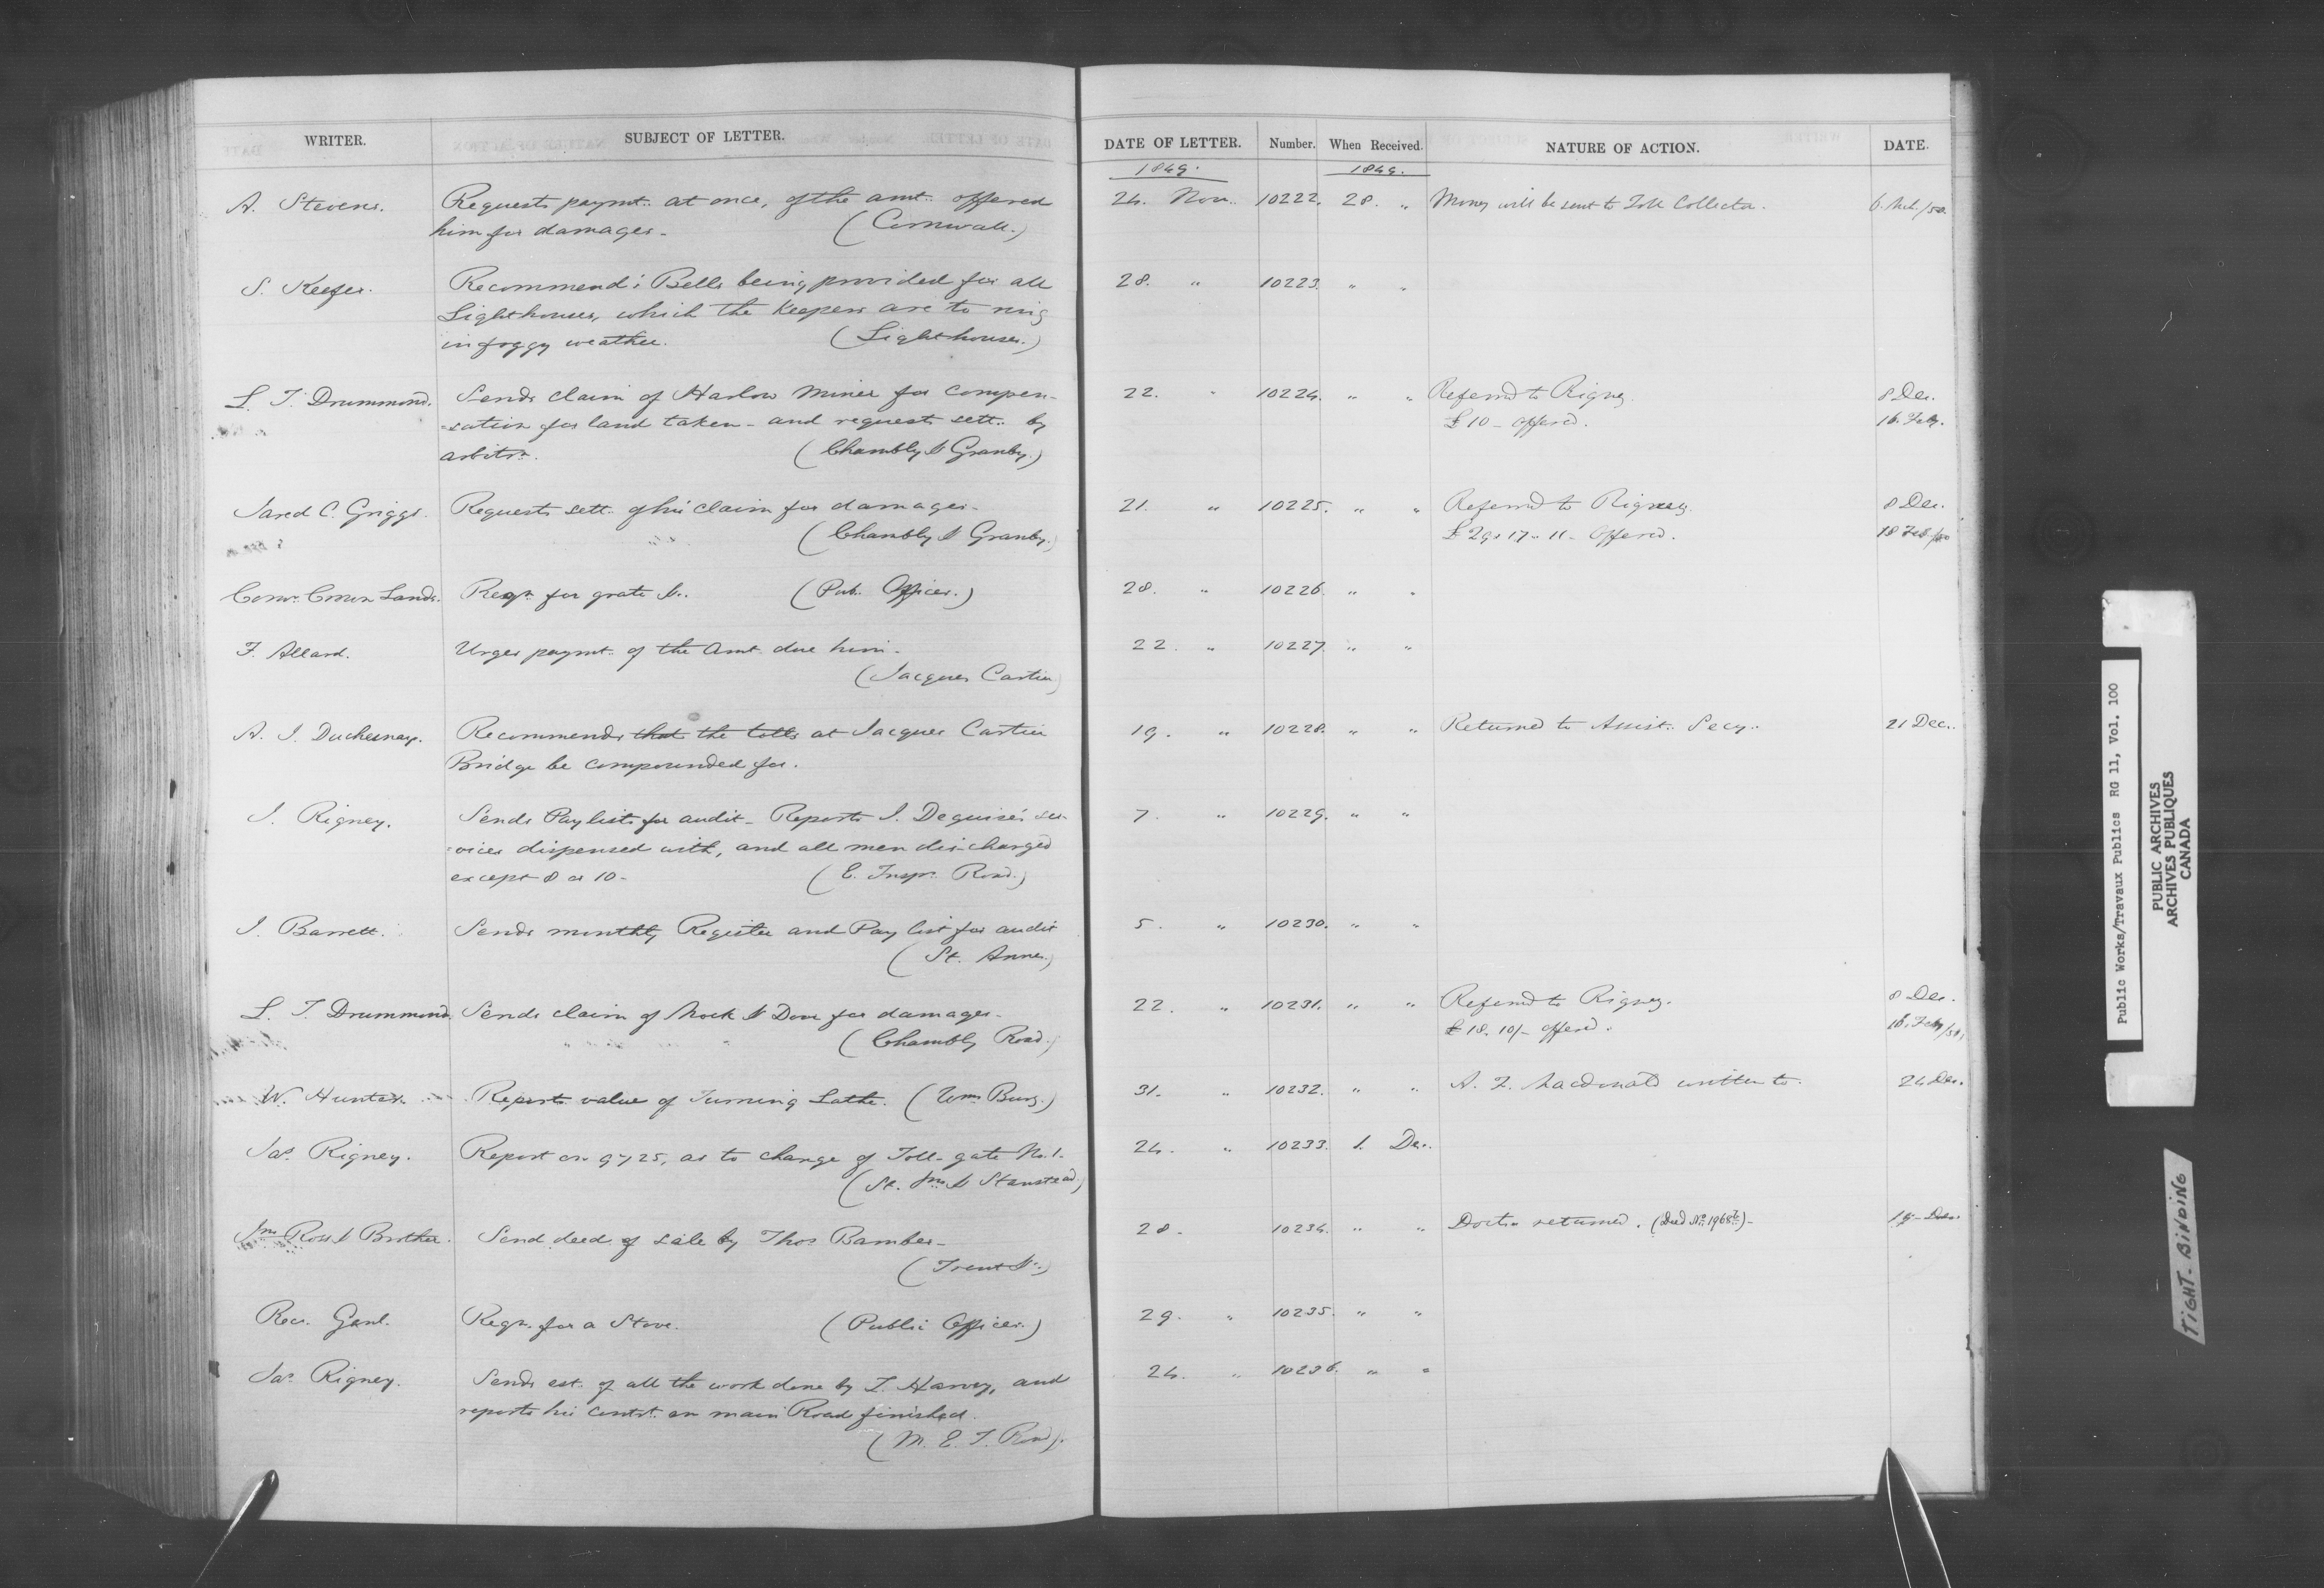 WRITER. SUBJECT OF LETTER. DATE OF LETTER. Number. When Received. NATURE OF ACTION. DATE.
1849. 1849.
A. Stevens. Requests paymt. at once, of the amt. offered 24. Nov. 10222. 28. " Money will be sent to Toll Collector. 6. Mch./50.
him for damages. (Cornwall.)
S. Keefer. Recommends Bells being provided for all 28. " 10223. " "
Lighthouses, which the Keepers are to ring
in foggy weather. (Lighthouses.)
L. T. Drummond. Sends claim of Harlow Miner for compen- 22. " 10224. " " Referred to Rigney. 8 Dec.
sation for land taken - and requests sett. by £10 - offered. 16. Feby.
arbitrn. (Chambly & Granby.)
Jared C. Griggs. Requests sett. of his claim for damages. 21. " 10225. " " Referred to Rigney. 8 Dec.
(Chambly & Granby.) £29. 17. 11. offered. 18 Feb./50
Comr. Crown Lands. Reqn. for grate &c. (Pub. Offices.) 28. " 10226. " "
F. Allard. Urges paymt. of the amt. due him. 22. " 10227. " "
(Jacques Cartier)
A. J. Duchesnay. Recommends that the tolls at Jacques Cartier 19. " 10228. " " Returned to Assist. Secy. 21 Dec.
Bridge be compounded for.
J. Rigney. Sends Pay lists for audit - Reports J. Deguise's ser- 7. " 10229. " "
vices dispensed with, and all men discharged
except 8 or 10 - (E. Insp. Road.)
J. Barrett. Sends monthly Register and Pay list for audit 5. " 10230. " "
(St. Anne.)
L. T. Drummond. Sends claim of Mock & Dow for damages. 22. " 10231. " " Referred to Rigney. 8 Dec.
(Chambly Road.) £18. 10/- offered. 16. Feby/50.
W. Hunter. Reports value of Turning Lathe. (Wm. Burg.) 31. " 10232. " " A. F. Macdonald written to. 24 Dec.
Jas. Rigney. Report on 9725, as to change of Toll-gate No. 1. 24. " 10233. 1. Dec.
(St. Jns. & Stanstead.)
Jno. Ross & Brother. Send deed of sale by Thos. Bamber. 28. 10234. " " Docts. returned. (Deed No. 19686) - 19 - Dec.
(Trent &c.)
Recr. Genl. Reqn. for a Stove. (Public Offices.) 29. " 10235. " "
Jas. Rigney. Sends est. of all the work done by T. Harvey, and 24. " 10236. " "
reports his contrt. on main Road finished.
(M. E. T. Road).
Public Works/Travaux Publics RG 11, Vol. 100
PUBLIC ARCHIVES
ARCHIVES PUBLIQUES
CANADA
TIGHT-BINDING